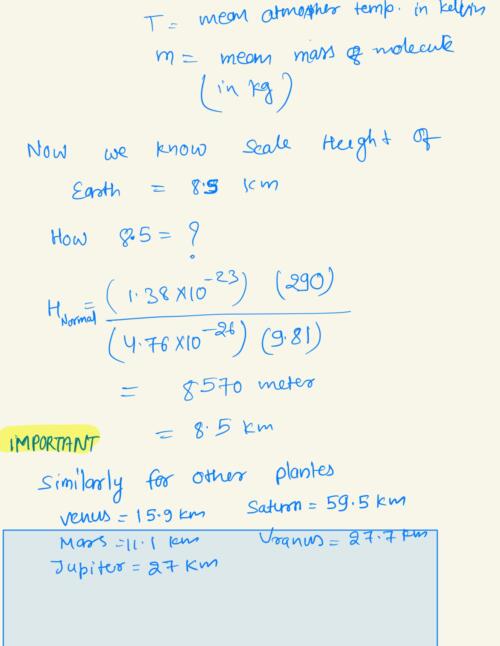 T = mean atmospher temp. in kelvin
m = mean mass of molecule
(in kg)
Now we know scale Height of
Earth = 8.5 km
How 8.5 = ?
H Normal = (1.38 × 10^-23) (290)
(4.76 × 10^-26) (9.81)
= 8570 meter
= 8.5 km
IMPORTANT
Similarly for other plantes
Venus = 15.9 km Saturn = 59.5 km
Mars = 11.1 km Uranus = 27.7 km
Jupiter = 27 km